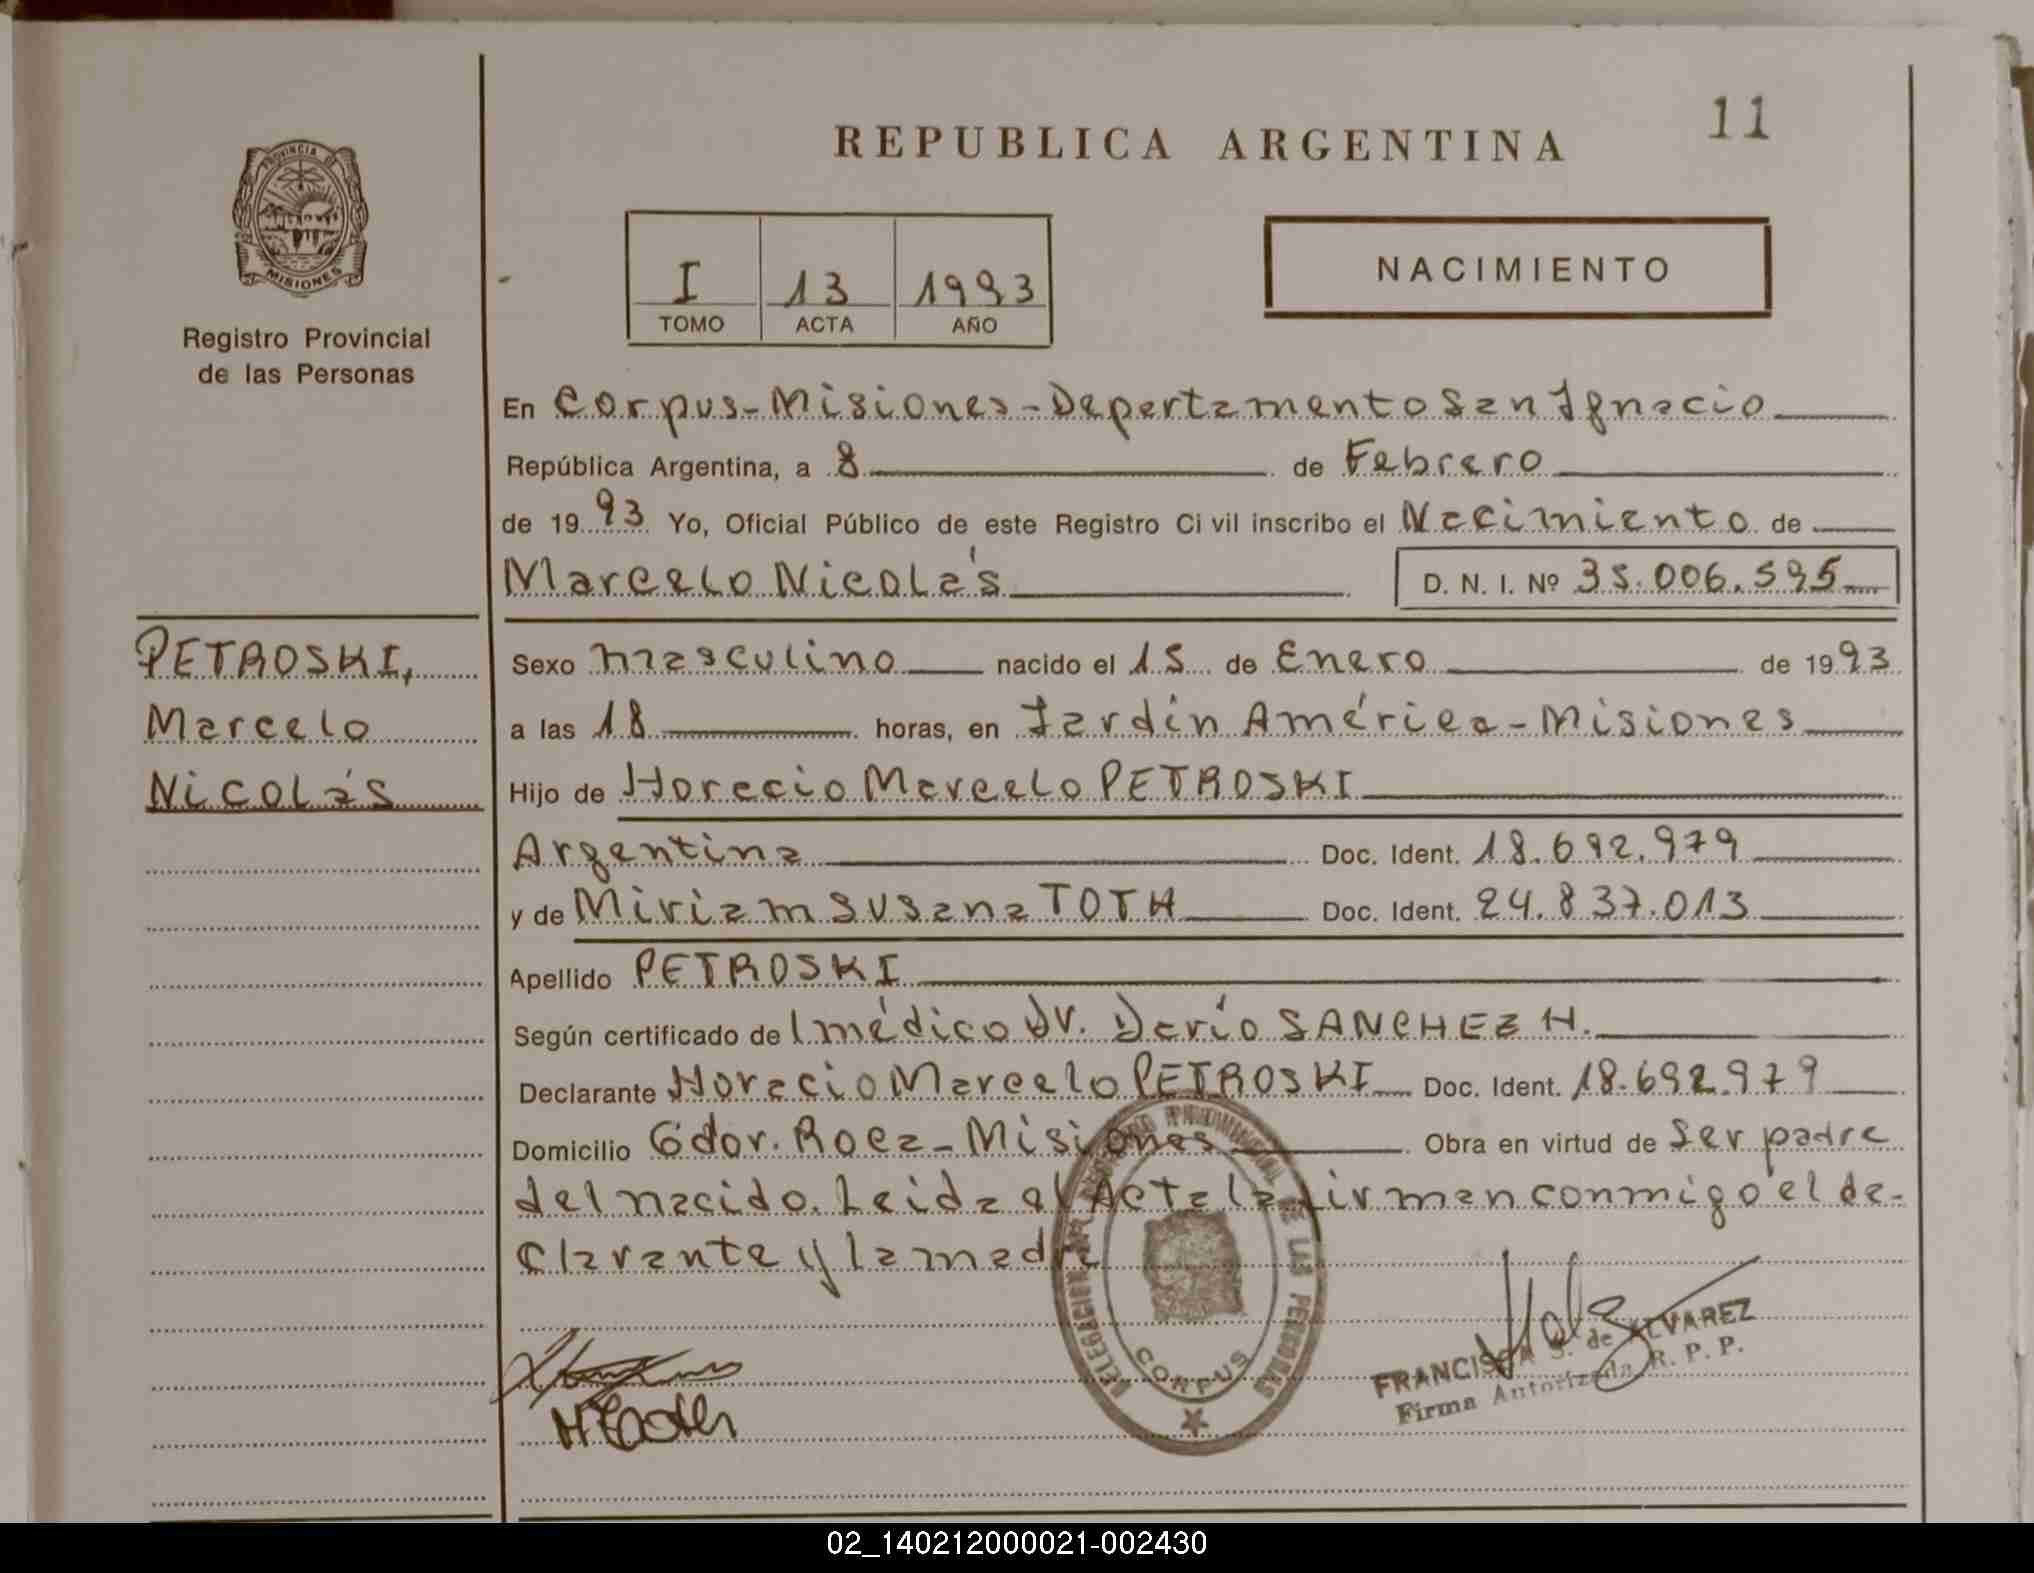 11
REPUBLICA ARGENTINA
PROVINCIA DE
MISIONES
Registro Provincial
de las Personas
I 13 1993
TOMO ACTA AÑO
NACIMIENTO
En Corpus-Misiones-Departamento San Ignacio
República Argentina, a 8 de Febrero
de 1993 Yo, Oficial Público de este Registro Civil inscribo el Nacimiento de
Marcelo Nicolás D. N. I. Nº 35.006.595
PETROSKI,
Marcelo
Nicolás
Sexo masculino nacido el 15 de Enero de 1993
a las 18 horas, en Jardín América-Misiones
Hijo de Horacio Marcelo PETROSKI
Argentina Doc. Ident. 18.692.979
y de Miriam Susana TOTH Doc. Ident. 24.837.013
Apellido PETROSKI
Según certificado del médico Dr. Darío SANCHEZ H.
Declarante Horacio Marcelo PETROSKI Doc. Ident. 18.692.979
Domicilio Gdor. Roca-Misiones Obra en virtud de Ser padre
del nacido. Leida el Acta la firman conmigo el de-
clarante y la madre
DELEGACION REGISTRO PROVINCIAL DE LAS PERSONAS
CORPUS
FRANCISCA S. de ALVAREZ
Firma Autorizada R. P. P.
MToth
02_140212000021-002430